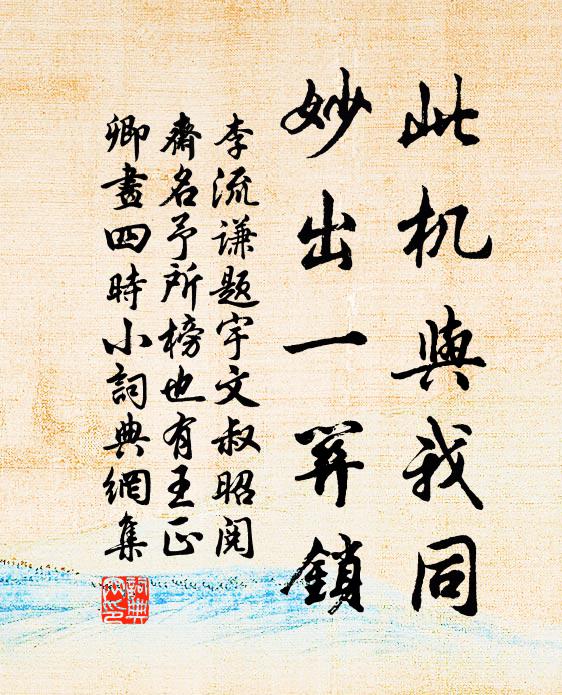 此机與我同
妙出一鎖
李流謙題宇文叔昭阅
齋名予所榜也有王正
卿畫四時小詞典網集